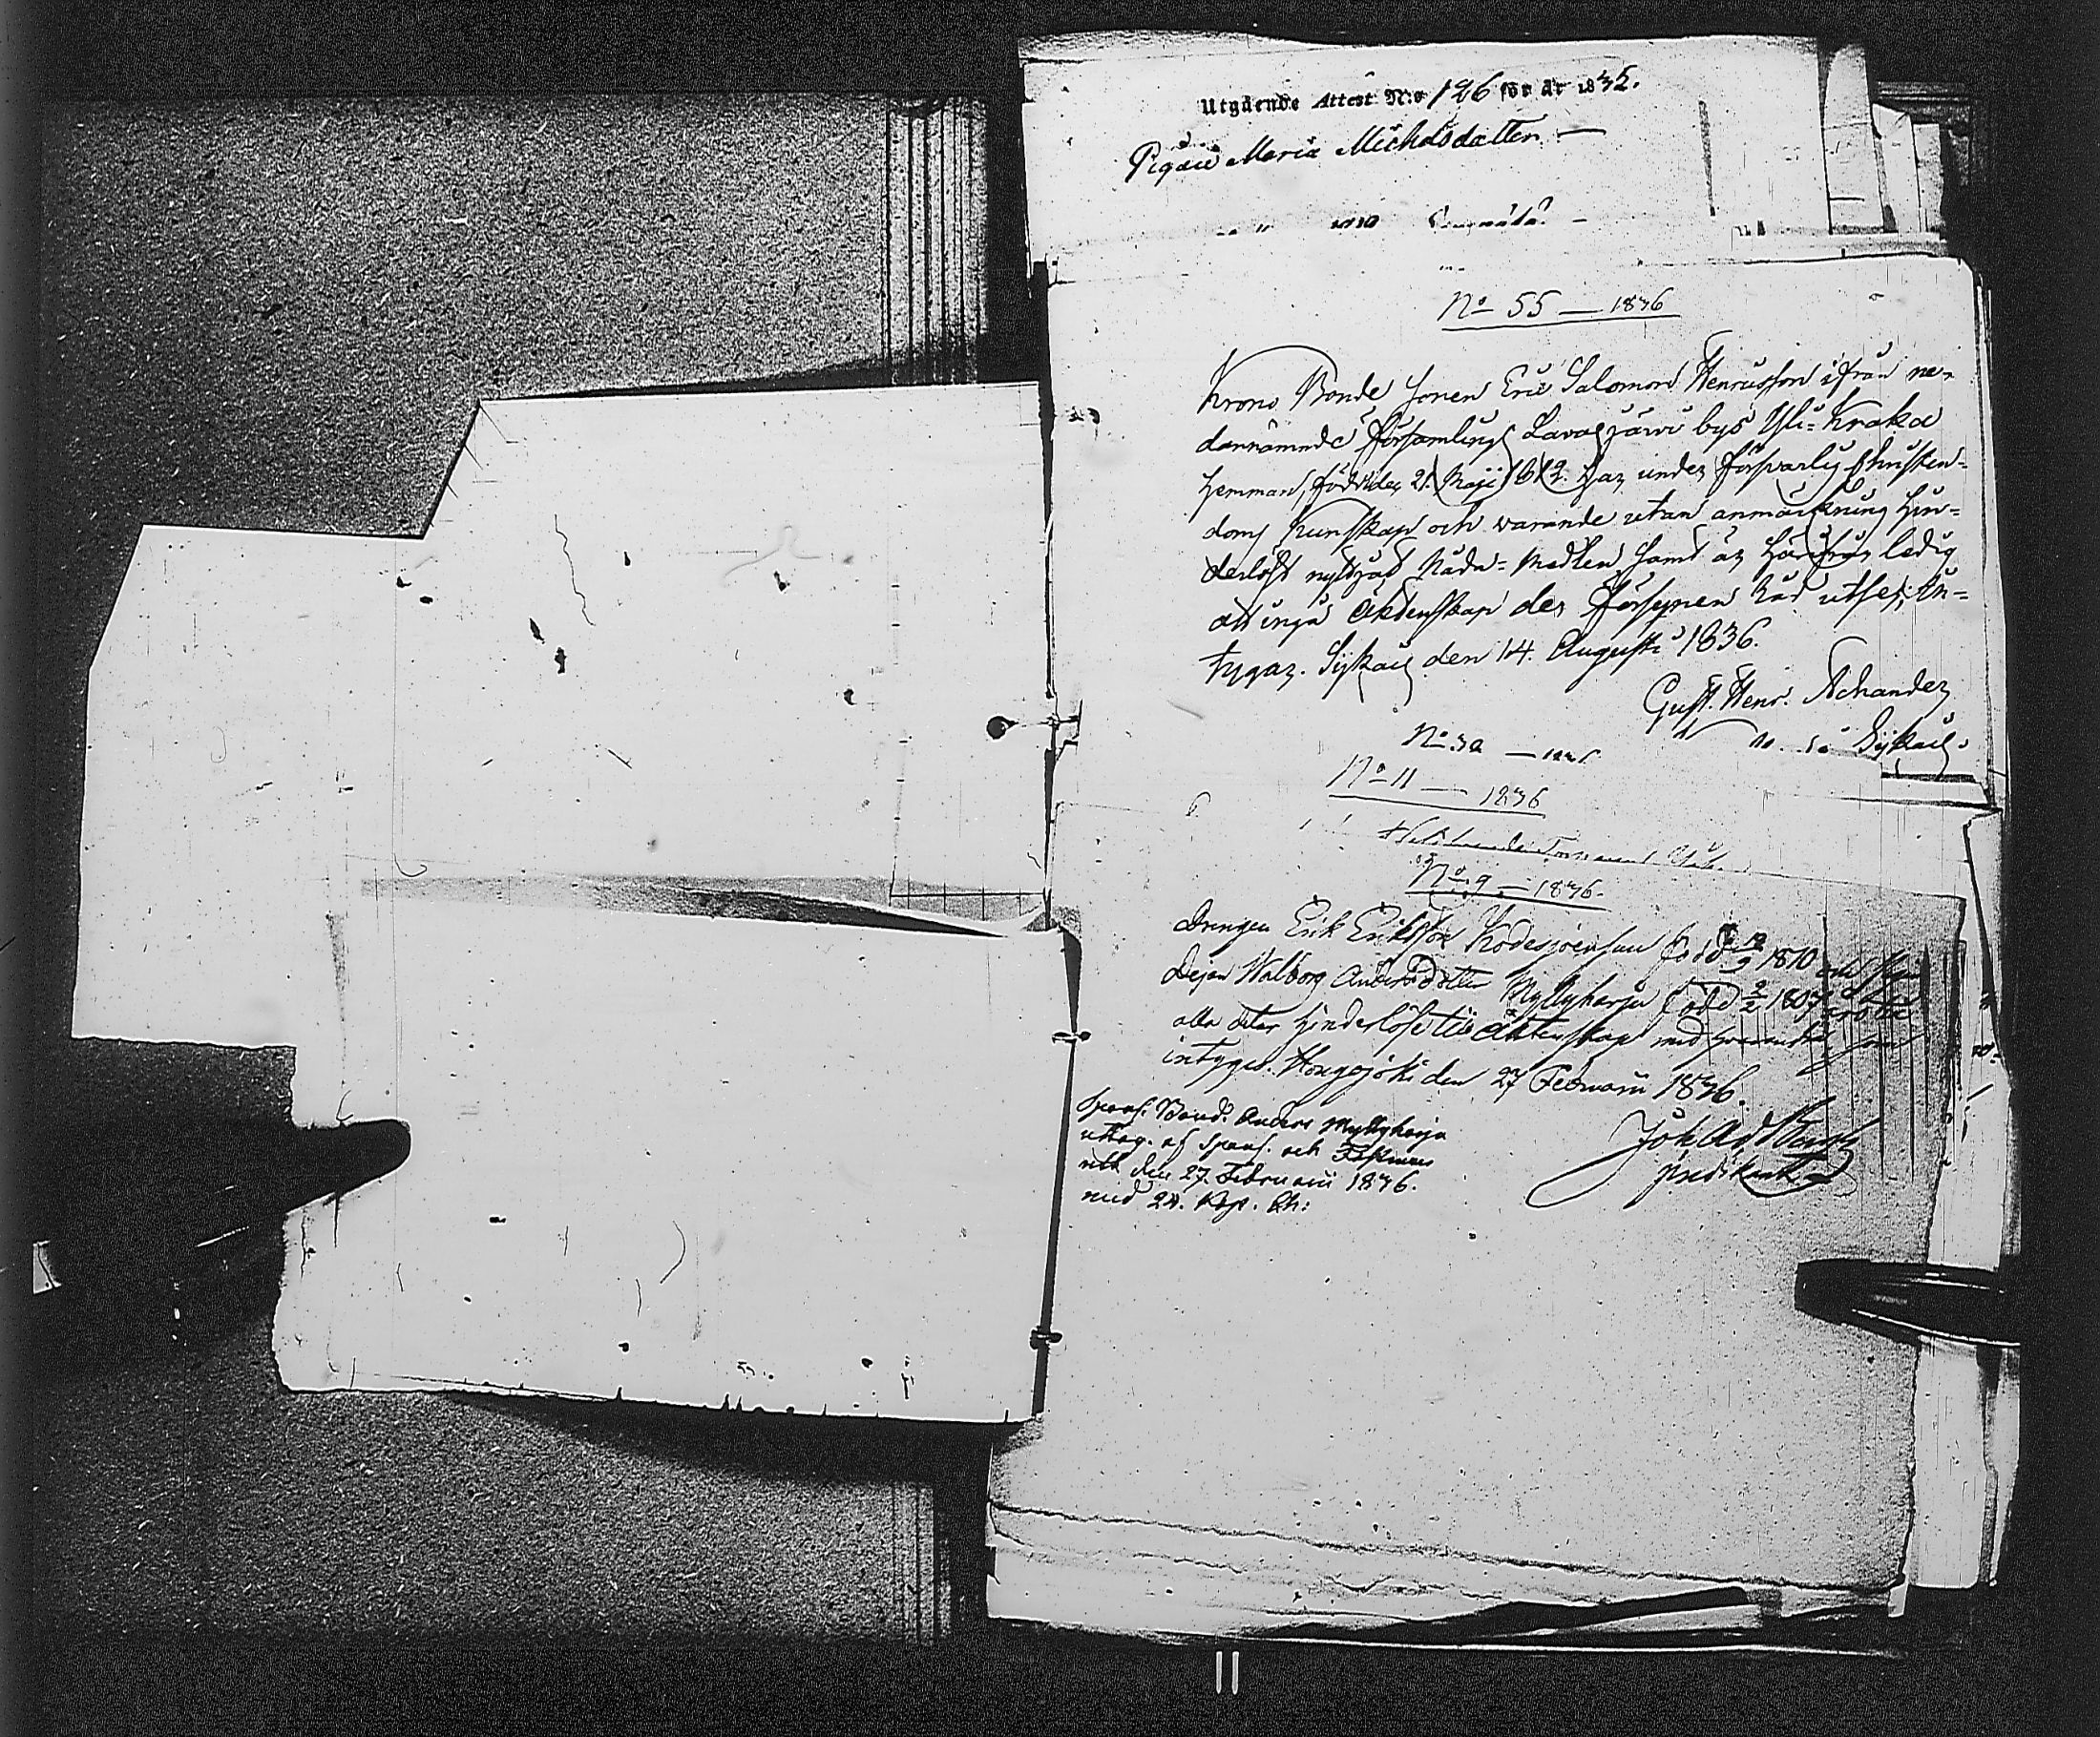 Utgående Attest N:o 126 för år 1835.
Pigan Maria Michelsdatter
N:o 55 — 1836
Krono Bonde Sonen Eric Salomon Henricsson ifrån ne-
dannämnde församlings Lavajärwi bys Yli-Kraka
hemman, född den 21. Maji 1812. har under försvarlig Christen-
doms Kunskap och varande utan anmärkning hin-
derlöst nyttjat Nåda-Medlen samt är härifrån ledig
att ingå Äktenskap der Försynen Råd utser; In-
tygar. Sijkais den 14. Augusti 1836.
Gust. Henr. Achander
Sijkais.
N:o 32 — 1836
N:o 11 — 1836
N:o 9 — 1836.
Drengen Erik Eriksson född 1810
Dejan Walborg Andersdotter Myllyharju född 2/2 1807 äro de
alla delar hinderlöse till Äktenskap med hvarandra, som
intygas. Hougojoki den 27 Februarii 1836.
Joh Ad
predikant
Spons. Bond. Anders Myllyharju
uttog. af Spons. och
den 27. Februarii 1836.
med 24. Kop. Ch: